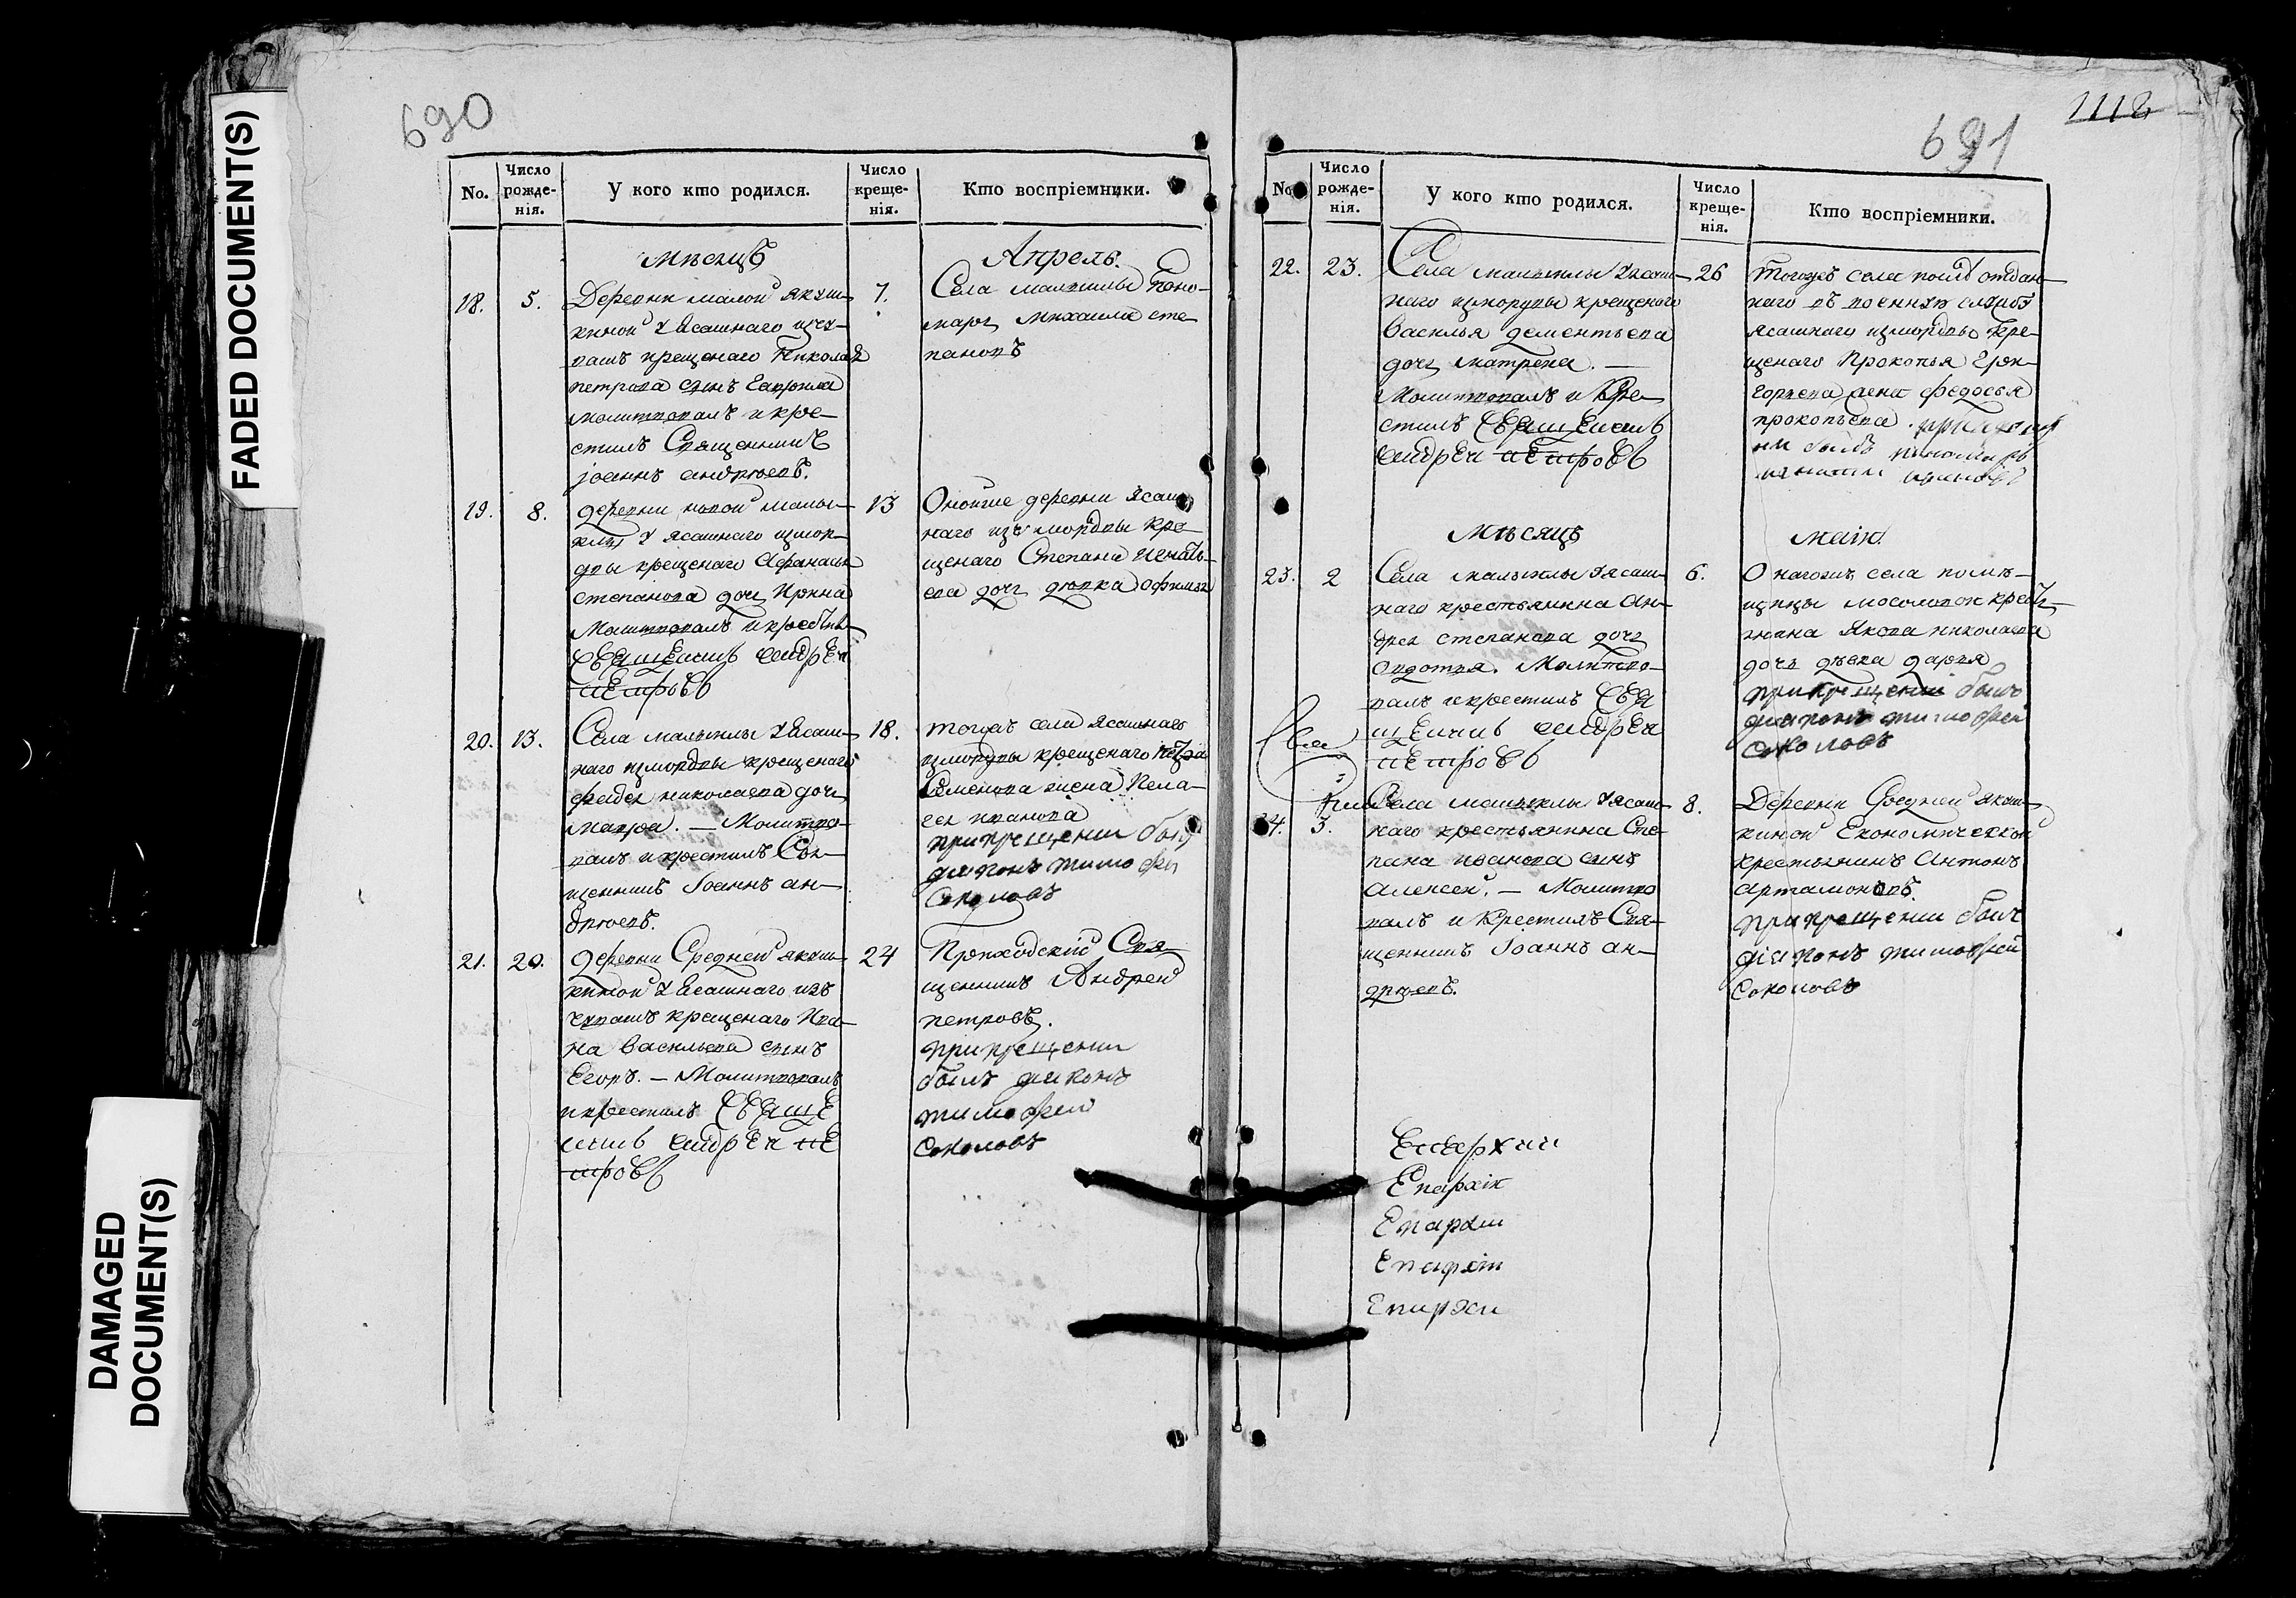 FADED DOCUMENT(S)
DAMAGED
DOCUMENT(S)
690
No.
Число
рожде-
нія.
У кого кто родился.
Число
креще-
нія.
Кто воспріемники.
мѣсяцъ
Апрель.
18.
5.
Деревни малой якуш-
кикой у Ясашнаго изчу-
вашъ крещенаго Николая
петрова сынъ Гаврила
молитвовалъ и кре-
стилъ Священникъ
іоаннъ андреевъ.
7.
Села малыклы поно-
марь михаила сте-
пановъ
19.
8.
деревни новой малы-
клы у ясашнаго измор-
двы крещенаго Афанасья
степанова дочь Ирина
Молитвовалъ икрестилъ
Священникъ андреи
петровъ
13
Оной же деревни Ясаш-
наго изъ мордвы кре-
щенаго Степана
ева дочь девка Офимья
20.
13.
Села малыклы у Ясаш-
наго измордвы крещенаго
фадея николаева дочь
мавра. — Молитво-
валъ и крестилъ Свя-
щенникъ Іоаннъ ан-
дреевъ.
18.
тогожъ села ясашнаго
измордвы крещенаго петра
Семенова жена Пела-
гея иванова
прикрещении былъ
диаконъ тимофеи
Соколовъ
21.
20.
деревни Средней якуш-
кикой у Ясашнаго изъ
чувашъ крещенаго Ива-
на васильева сынъ
Егоръ. — Молитвовалъ
икрестилъ Свяще
никъ андреи пе
тровъ
24
Приходскій Свя-
щенникъ Андрей
петровъ.
прикрещении
былъ диаконъ
тимофеи
Соколовъ
1112
691
No.
Число
рожде-
нія.
У кого кто родился.
Число
креще-
нія.
Кто воспріемники.
22.
23.
Села малыклы у Ясаш-
наго измордвы крещенаго
василья дементьева
дочь матрена. —
Молитвовалъ и кре-
стилъ Священикъ
андреи петровъ
26
тогожъ села отдан-
наго въ военную службу
ясашнаго измордвы кре-
щенаго Прокопья григ-
горьева жена федосья
прокопьева. прикреще
ни былъ пономарь
мѣсяцъ
маій.
23.
2
Села малыклы у ясаш-
наго крестьянина ан-
дрея степанова дочь
овдотья. Молитво-
валъ икрестилъ Свя
щеникъ андреи
петровъ
6.
Онагожъ села помѣ-
щицы крестья-
нина Якова николаева
дочь девка дарья
при крещении былъ
диаконъ тимофеи
Соколовъ
24.
3.
Села малыклы у ясаш-
наго крестьянина Сте-
пана иванова сынъ
алексей. — Молитво
валъ и крестилъ Свя-
щенникъ Іоаннъ ан-
дреевъ.
8.
Деревни Средней якуш-
кикой Економической
крестьянинъ Антонъ
артамоновъ.
прикрещении былъ
діаконъ тимофей
Соколовъ
Епархіи
Епархіи
Епархии